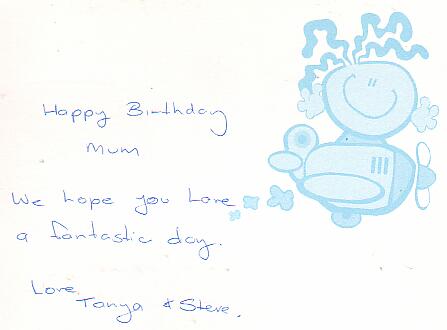 Happy Birthday
Mum
We hope you have
a fantastic day.
Love
Tanya & Steve.